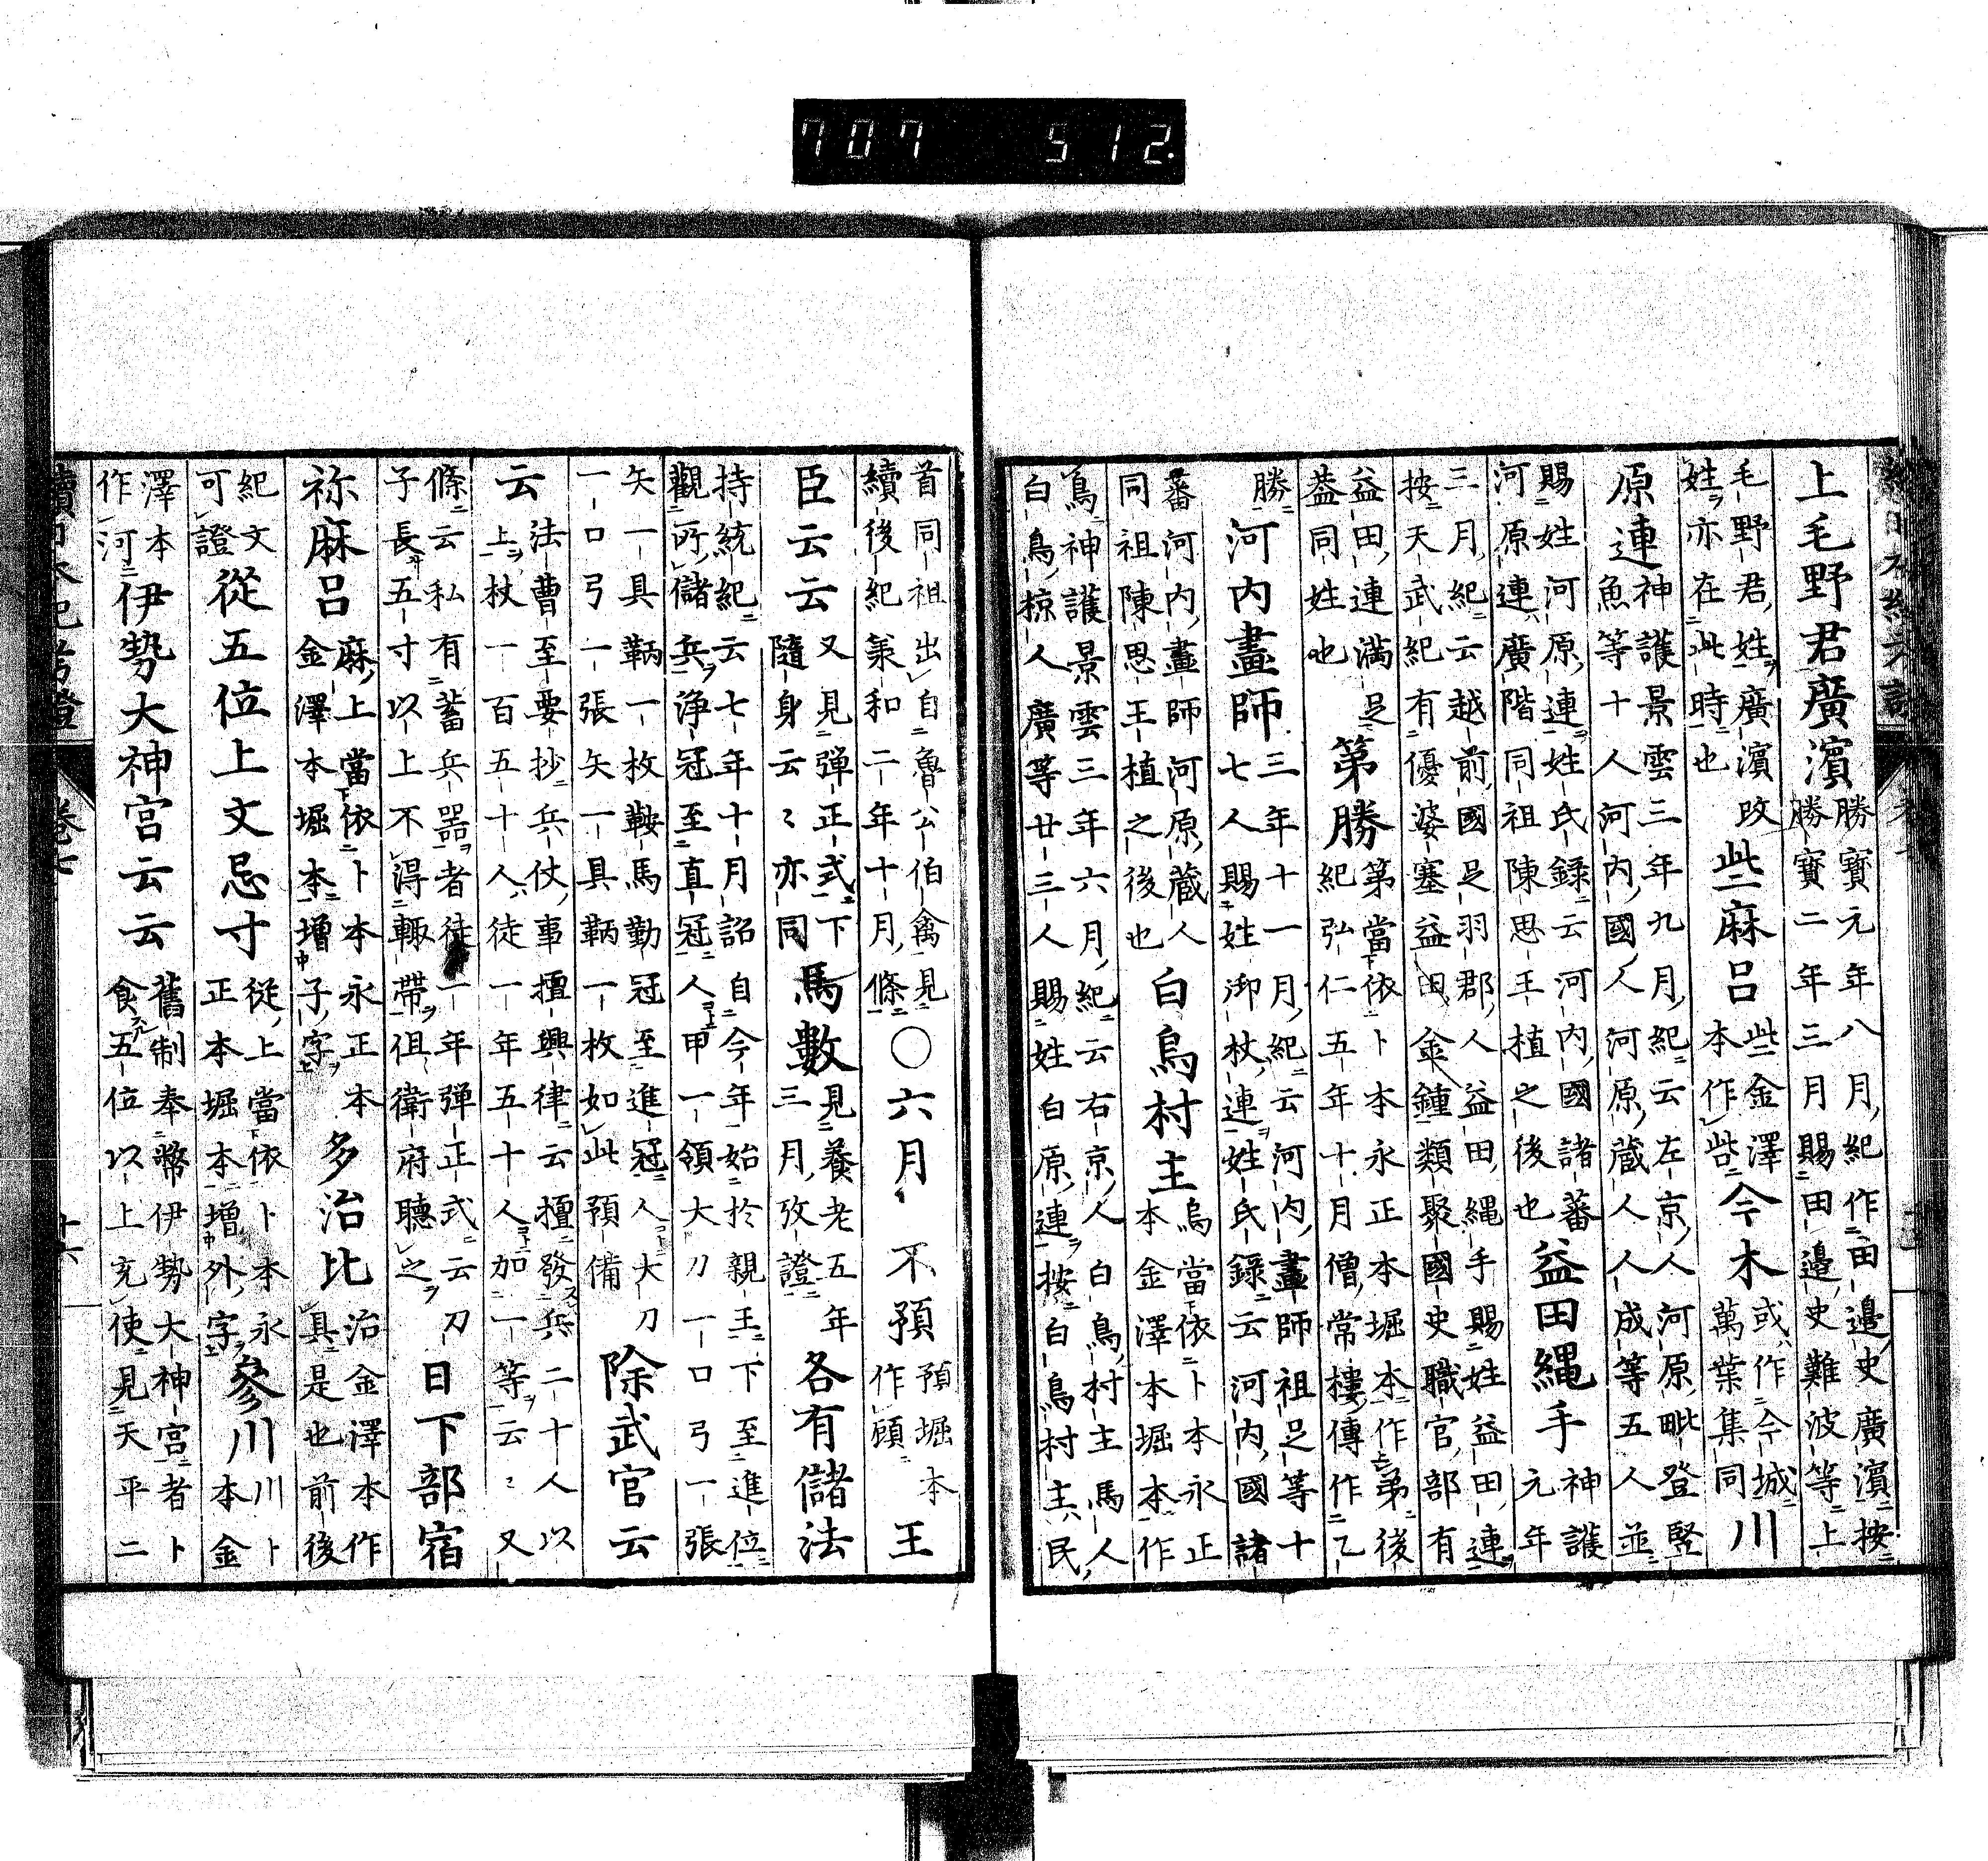 707 512.
上毛野君廣濱勝寶元年八月紀作田邊史廣濱按
勝寶二年三月賜田邊史難波等上
毛野君姓廣濱改
姓亦在此時也些麻呂些金澤
本作呰今木或作今城
萬葉集同川
原連神護景雲三年九月紀云左京人河原毗登堅
魚等十人河内國人河原蔵人人成等五人並
賜姓河原連姓氏録云河内國諸蕃
河原連廣階同祖陳思王植之後也益田縄手神護
元年
三月紀云越前國足羽郡人益田縄手賜姓益田連
按天武紀有優婆塞益田金鍾類聚國史職官部有
益田連満足
益同姓也第勝第當依卜本永正本堀本作弟後
紀弘仁五年十月僧常樓傳作乙
勝河内畫師三年十一月紀云河内畫師祖足等十
七人賜姓御杖連姓氏録云河内國諸
蕃河内畫師河原蔵人
同祖陳思王植之後也白烏村主烏當依卜本永正
本金澤本堀本作
鳥神護景雲三年六月紀云右京人白鳥村主馬人
白鳥椋人廣等廿三人賜姓白原連按白鳥村主民
首同祖出自魯公伯禽見
續後紀第和二年十月條〇六月不預預堀本
作顧王
臣云云又見弾正式下
隨身云云亦同馬數見養老五年
三月攷證各有儲法
持統紀云七年十月詔自今年始於親王下至進位
觀所儲兵浄冠至直冠人甲一領大刀一口弓一張
矢一具鞆一枚鞍馬勤冠至進冠人大刀
一口弓一張矢一具鞆一枚如此預備除武官云
云法曹至要抄兵仗事擅興律云擅發兵二十人以
上杖一百五十人徒一年五十人加一等云云又
條云私有蓄兵器者徒一年弾正式云刀
子長五寸以上不得輙帶但衛府聴之日下部宿
祢麻呂麻上當依卜本永正本
金澤本堀本増子字多治比治金澤本作
具是也前後
紀文
可證從五位上文忌寸從上當依卜本永
正本堀本増外字參川川卜
本金
澤本
作河伊勢大神宮云云舊制奉幣伊勢大神宮者卜
食五位以上充使見天平二
續日本紀考證 卷七 十六